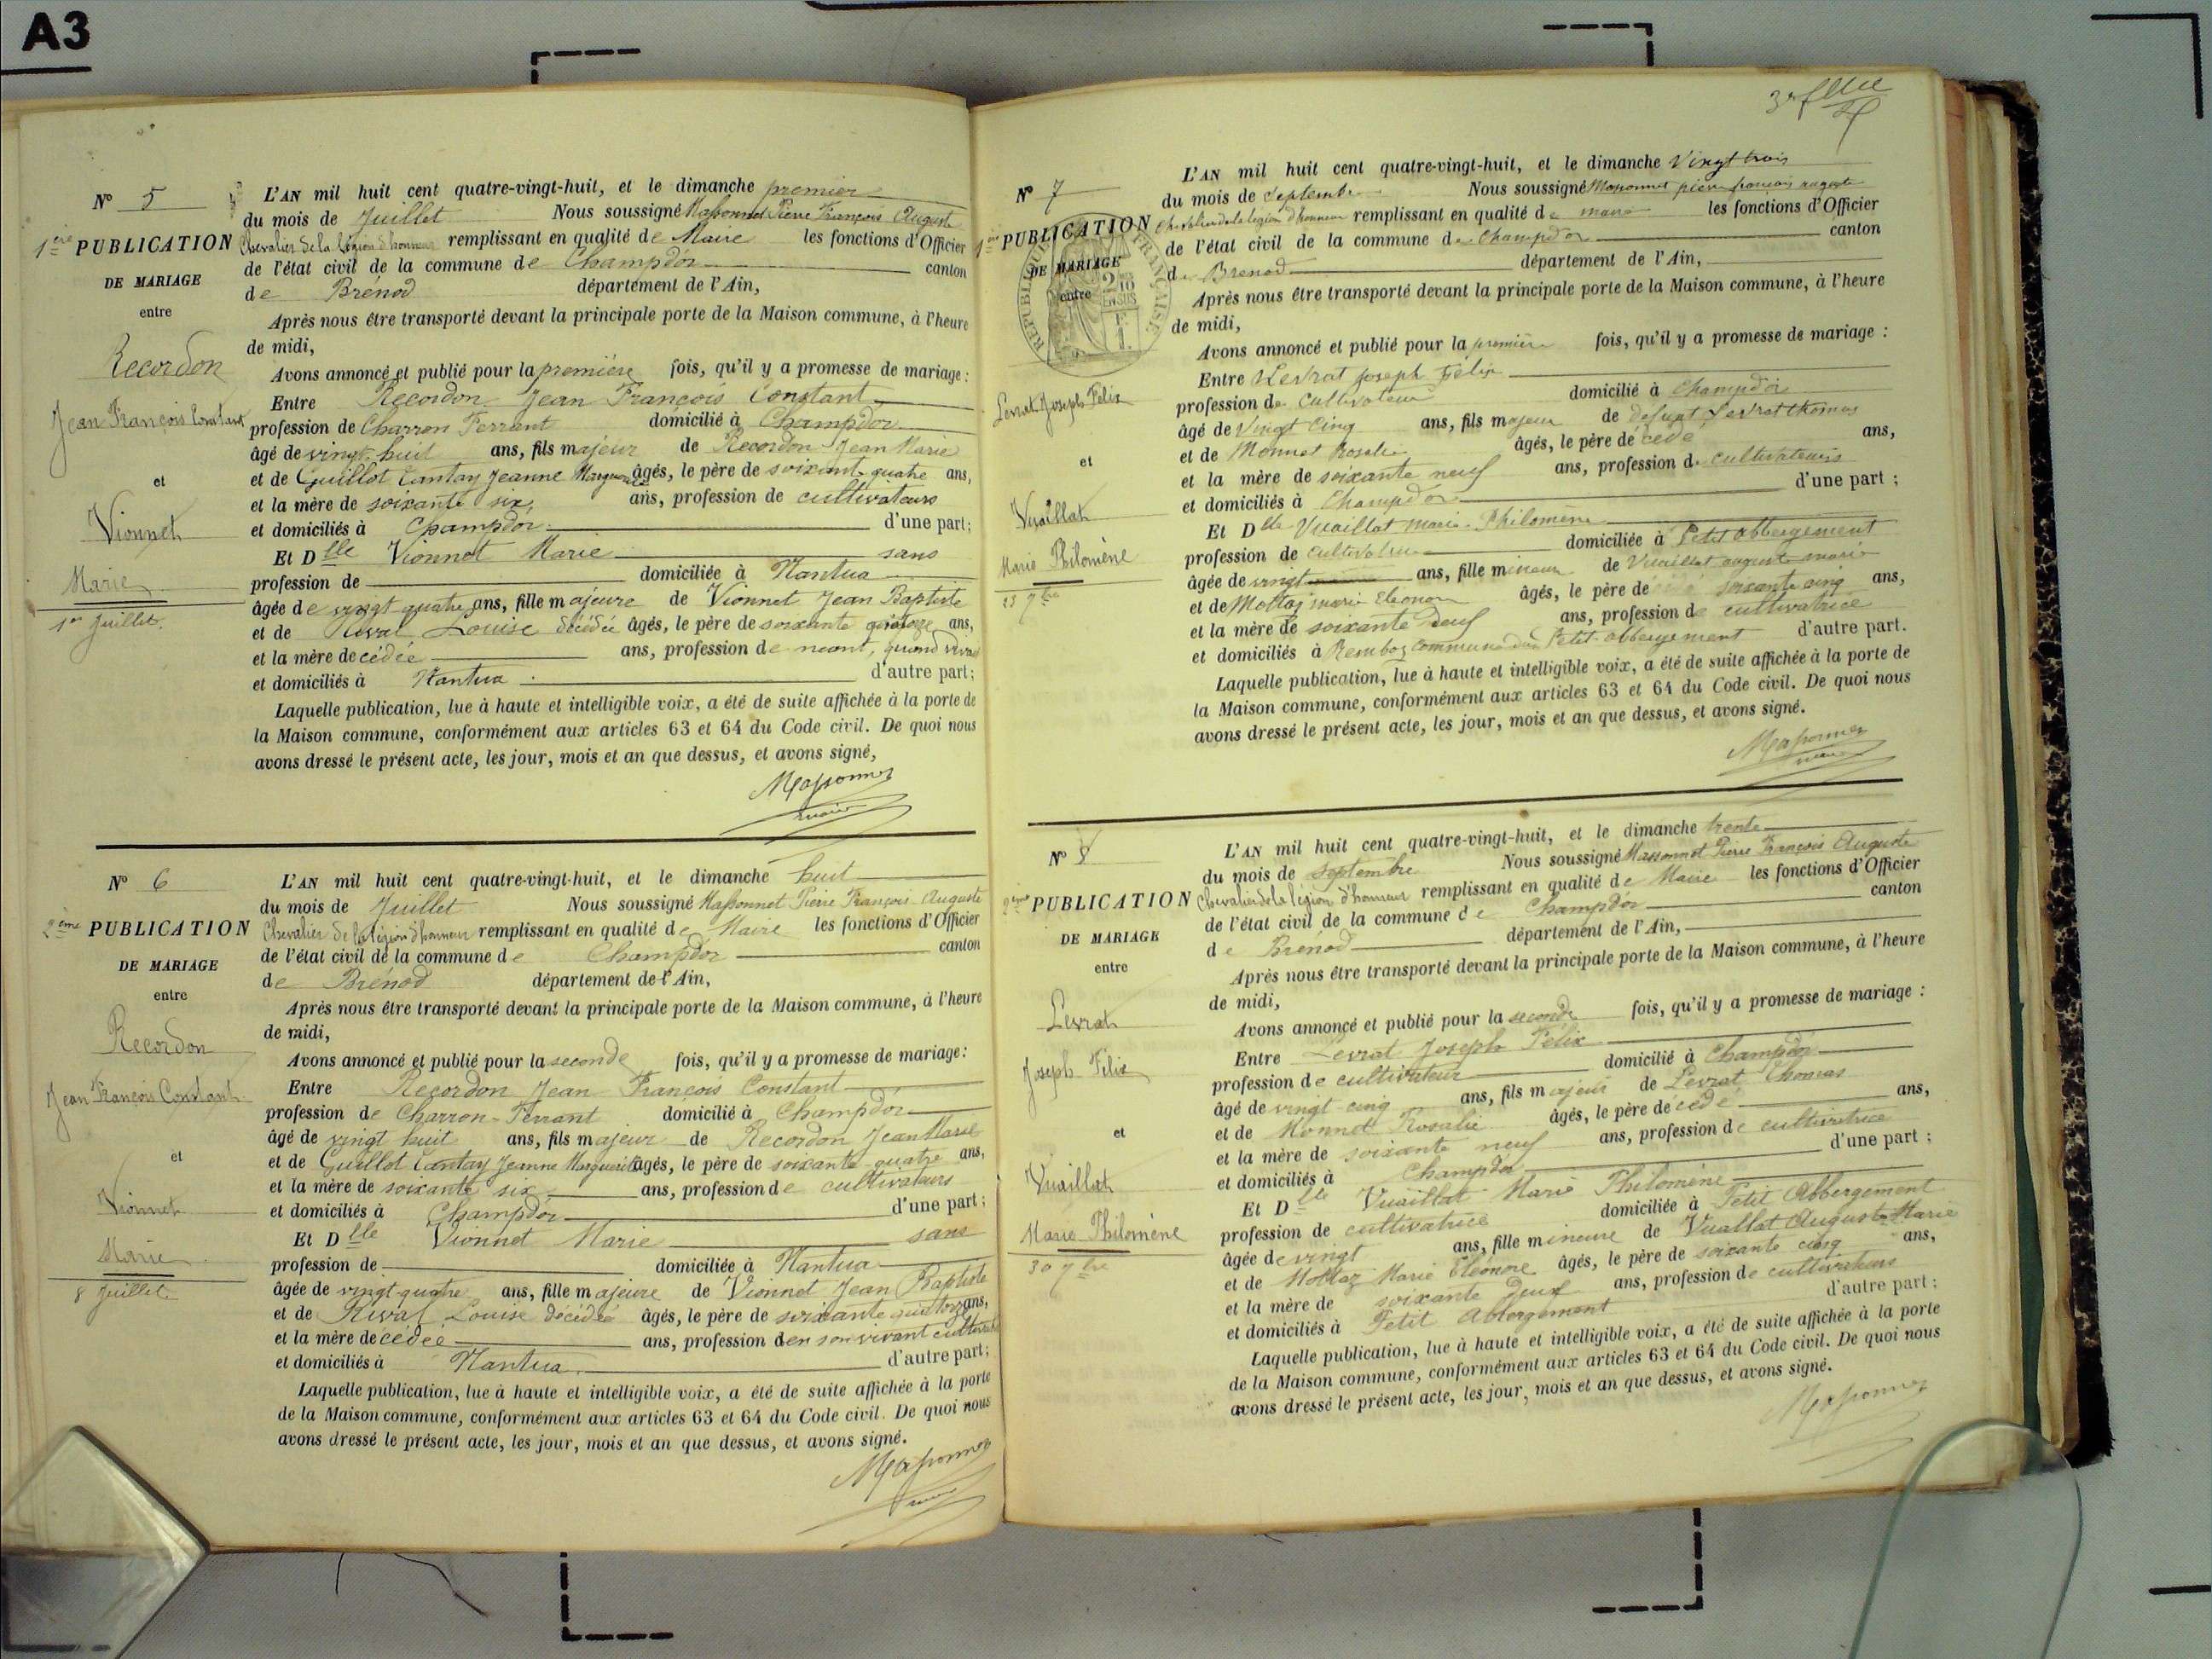 A3
N° 5
1ère PUBLICATION
DE MARIAGE
entre
Recordon
Jean François Constant
et
Vionnet
Marie
1er Juillet
L'AN mil huit cent quatre-vingt-huit, et le dimanche premier
du mois de Juillet Nous soussigné Massonnet Pierre François Auguste
Chevalier de la légion d'honneur remplissant en qualité de Maire les fonctions d'Officier
de l'état civil de la commune de Champdor canton
de Brénod département de l'Ain,
Après nous être transporté devant la principale porte de la Maison commune, à l'heure
de midi,
Avons annoncé et publié pour la première fois, qu'il y a promesse de mariage :
Entre Recordon Jean François Constant
profession de Charron Ferrant domicilié à Champdor
âgé de vingt-huit ans, fils majeur de Recordon Jean Marie
et de Guillot Tantay Jeanne Marguerite âgés, le père de soixante quatre ans,
et la mère de soixante six, ans, profession de cultivateurs
et domiciliés à Champdor d'une part;
Et Dlle Vionnet Marie sans
profession de domiciliée à Nantua
âgée de vingt-quatre ans, fille majeure de Vionnet Jean Baptiste
et de Rival Louise décédée âgés, le père de soixante quatorze ans,
et la mère décédée ans, profession de néant, quand
et domiciliés à Nantua d'autre part;
Laquelle publication, lue à haute et intelligible voix, a été de suite affichée à la porte de
la Maison commune, conformément aux articles 63 et 64 du Code civil. De quoi nous
avons dressé le présent acte, les jour, mois et an que dessus, et avons signé,
Massonnet
maire
N° 6
2ème PUBLICATION
DE MARIAGE
entre
Recordon
Jean François Constant
et
Vionnet
Marie
8 Juillet
L'AN mil huit cent quatre-vingt-huit, et le dimanche huit
du mois de Juillet Nous soussigné Massonnet Pierre François Auguste
Chevalier de la légion d'honneur remplissant en qualité de Maire les fonctions d'Officier
de l'état civil de la commune de Champdor canton
de Brénod département de l'Ain,
Après nous être transporté devant la principale porte de la Maison commune, à l'heure
de midi,
Avons annoncé et publié pour la seconde fois, qu'il y a promesse de mariage :
Entre Recordon Jean François Constant
profession de Charron-Ferrant domicilié à Champdor
âgé de vingt huit ans, fils majeur de Recordon Jean Marie
et de Guillot Tantay Jeanne Marguerite âgés, le père de soixante-quatre ans,
et la mère de soixante six, ans, profession de cultivateurs
et domiciliés à Champdor d'une part;
Et Dlle Vionnet Marie sans
profession de domiciliée à Nantua
âgée de vingt-quatre ans, fille majeure de Vionnet Jean Baptiste
et de Rival Louise décédée âgés, le père de soixante quatorze ans,
et la mère décédée ans, profession de en son vivant
et domiciliés à Nantua d'autre part;
Laquelle publication, lue à haute et intelligible voix, a été de suite affichée à la porte
de la Maison commune, conformément aux articles 63 et 64 du Code civil. De quoi nous
avons dressé le présent acte, les jour, mois et an que dessus, et avons signé.
Massonnet
maire
N° 7
1ère PUBLICATION
DE MARIAGE
entre
Levrat Joseph Félix
et
Vuaillat
Marie Philomène
23 7bre
L'AN mil huit cent quatre-vingt-huit, et le dimanche Vingt trois
du mois de Septembre Nous soussigné Massonnet pierre françois auguste
Chevalier de la légion d'honneur remplissant en qualité de maire les fonctions d'Officier
de l'état civil de la commune de Champdor canton
de Brenod département de l'Ain,
Après nous être transporté devant la principale porte de la Maison commune, à l'heure
de midi,
Avons annoncé et publié pour la première fois, qu'il y a promesse de mariage :
Entre Levrat Joseph Félix
profession de Cultivateur domicilié à Champdor
âgé de Vingt Cinq ans, fils majeur de defunt Levrat thomas
et de Monnet Rosalie âgés, le père décédé ans,
et la mère de soixante neuf ans, profession de cultivateurs
et domiciliés à Champdor d'une part ;
Et Dlle Vuaillat Marie Philomène
profession de cultivatrice domiciliée à Petit abbergement
âgée de vingt ans, fille mineure de Vuaillat auguste marie
et de Mottaz marie Eleonore âgés, le père de soixante cinq ans,
et la mère de soixante deux ans, profession de cultivatrice
et domiciliés à commune du Petit-abbergement d'autre part.
Laquelle publication, lue à haute et intelligible voix, a été de suite affichée à la porte de
la Maison commune, conformément aux articles 63 et 64 du Code civil. De quoi nous
avons dressé le présent acte, les jour, mois et an que dessus, et avons signé.
Massonnet
maire
N° 8
2ème PUBLICATION
DE MARIAGE
entre
Levrat
Joseph Félix
et
Vuaillat
Marie Philomène
30 7bre
L'AN mil huit cent quatre-vingt-huit, et le dimanche trente
du mois de septembre Nous soussigné Massonnet Pierre François Auguste
Chevalier de la légion d'honneur remplissant en qualité de Maire les fonctions d'Officier
de l'état civil de la commune de Champdor canton
de Brénod département de l'Ain,
Après nous être transporté devant la principale porte de la Maison commune, à l'heure
de midi,
Avons annoncé et publié pour la seconde fois, qu'il y a promesse de mariage :
Entre Levrat Joseph Félix
profession de cultivateur domicilié à Champdor
âgé de vingt-cinq ans, fils majeur de Levrat Thomas
et de Monnet Rosalie âgés, le père décédé ans,
et la mère de soixante neuf ans, profession de cultivatrice
et domiciliés à Champdor d'une part ;
Et Dlle Vuaillat Marie Philomène
profession de cultivatrice domiciliée à Petit Abbergement
âgée de vingt ans, fille mineure de Vuallat Auguste Marie
et de Mottaz Marie Eléonore âgés, le père de soixante cinq ans,
et la mère de soixante deux ans, profession de cultivateurs
et domiciliés à Petit Abbergement d'autre part ;
Laquelle publication, lue à haute et intelligible voix, a été de suite affichée à la porte
de la Maison commune, conformément aux articles 63 et 64 du Code civil. De quoi nous
avons dressé le présent acte, les jour, mois et an que dessus, et avons signé.
Massonnet